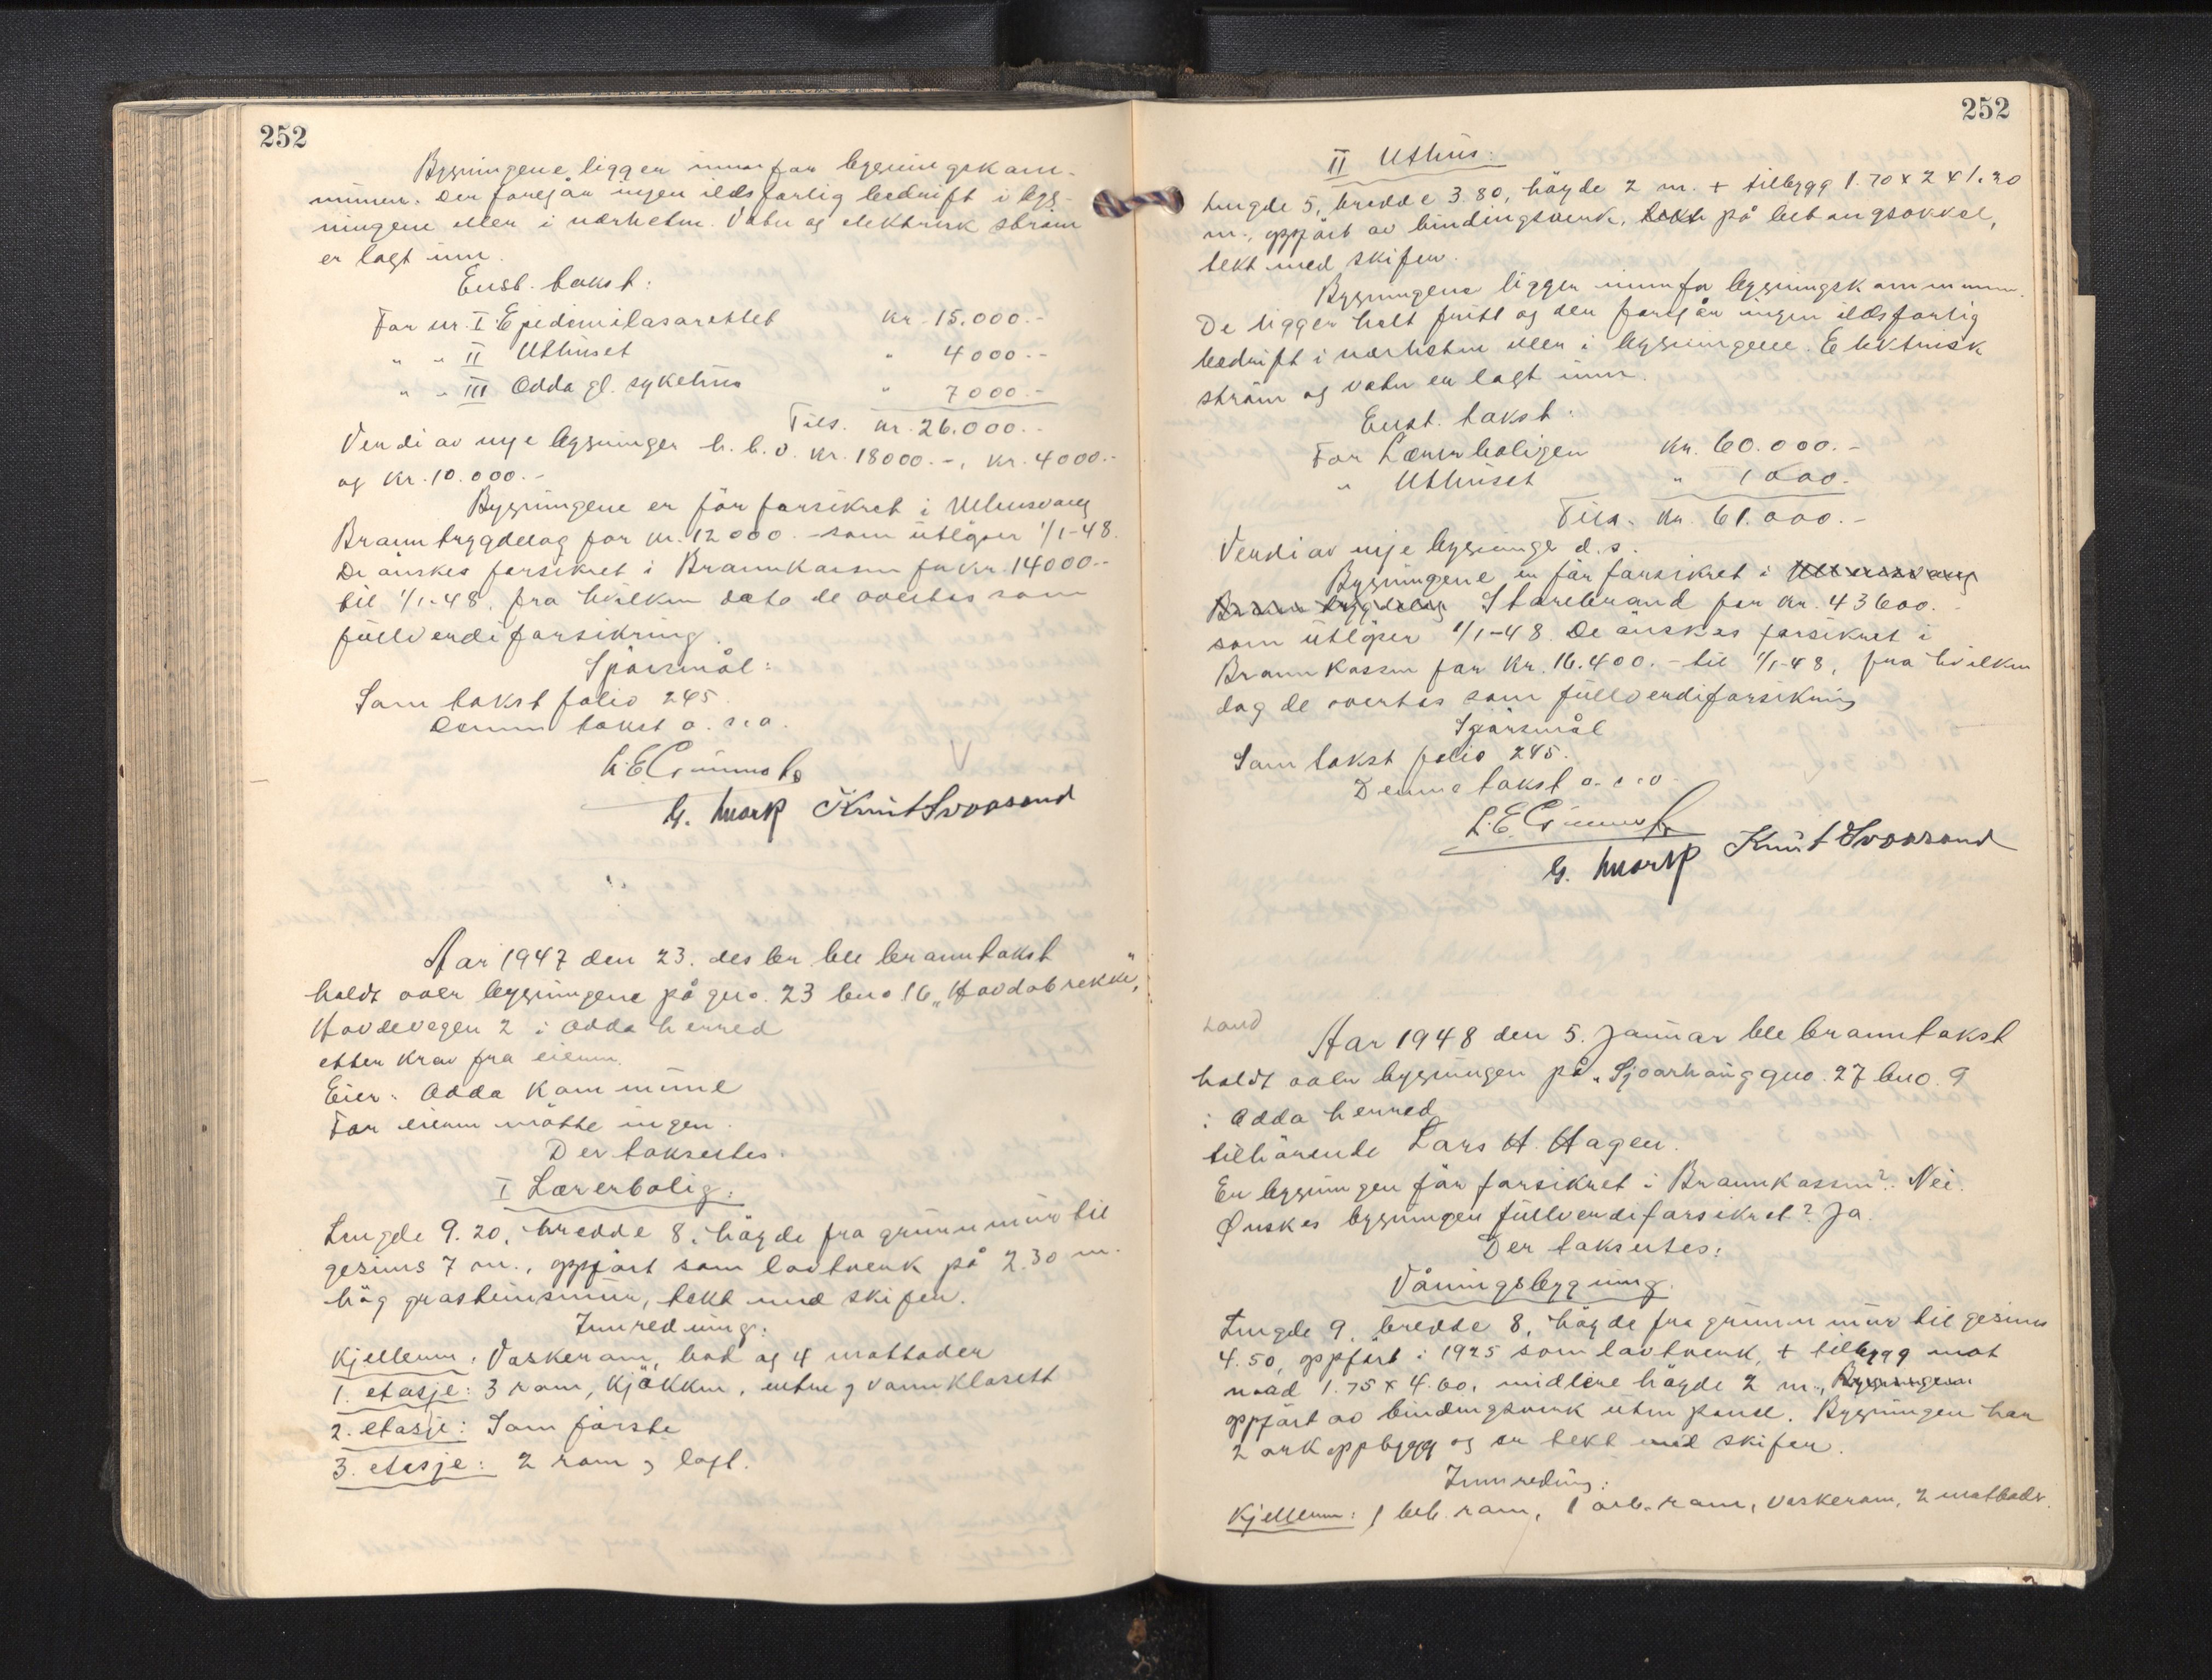 252
Bygningene ligger innafor bygningskom-
munen. Der foregår ingen ildsfarlig bedrift i byg-
ningene eller i nærheten. Vatn og elektrisk strøm
er lagt inn.
Enst. takst:
For nr. I Epidemilasarettet kr. 15.000.-
" " II Uthuset " 4000.-
" " III Odda gl. sykehus " 7000.-
Tils. kr. 26.000.-
Verdi av nye bygninger h.h.v. kr. 18000.-, kr. 4000.-
og kr. 10.000.-
Bygningene er før forsikret i Ullensvang
Brannbygdelag for kr. 12000.- som utløper 1/1-48.
De ønskes forsikret i Brannkassen for kr. 14000.-
til 1/1-48, fra hvilken dato de overtas som
fullverdiforsikring.
Spørsmål:
Som takst folio 245.
Denne takst o. s. o.
G. Mork Knut Svaasand
Aar 1947 den 23. desbr ble branntakst
holdt over bygningene på gno. 23 bno 16 "Hovdabrekke",
Hovdevegen 2 i Odda herred
etter krav fra eieren.
Eier: Odda Kommune
For eieren møtte ingen.
Der taksertes:
I Lærerbolig:
Lengde 9.20, bredde 8, høgde fra grunnmur til
gesims 7 m., oppført som lavtverk på 2.30 m.
høg gråsteinsmur, tekt med skifer.
Innredning:
Kjelleren: Vaskerom, bad og 4 matboder
1. etasje: 3 rom, kjøkken, entre, vannklosett
2. etasje: Som første
3. etasje: 2 rom, loft.
252
II Uthus:
Lengde 5, bredde 3.80, høgde 2 m. + tilbygg 1.70 x 2 x 1.20
m., oppført av bindingsverk, tekt på betongsokkel,
tekt med skifer.
Bygningene ligger innafor bygningskommunen.
De ligger helt fritt og der foregår ingen ildsfarlig
bedrift i nærheten eller i bygningene. Elektrisk
strøm og vatn er lagt inn.
Enst. takst:
For Lærerboligen kr. 60.000.-
" Uthuset " 1000.-
Tils. kr. 61.000.-
Verdi av nye bygninger d.s.
Bygningene er før forsikret i Ullensvang
Brannbygdelag Storebrand for kr. 43600.-
som utløper 1/1-48. De ønskes forsikret i
Brannkassen for kr. 16.400.- til 1/1-48, fra hvilken
dag de overtas som fullverdiforsikring
Spørsmål
Som takst folio 245.
Denne takst o. s. o.
G. Mork Knut Svaasand
Land
Aar 1948 den 5. Januar ble branntakst
holdt over bygningen på "Sjoarhaug gno. 27 bno. 9
i Odda herred
tilhørende Lars H. Hagen.
Er bygningen før forsikret i Brannkassen? Nei.
Ønskes bygningen fullverdiforsikret? Ja.
Der taksertes:
Våningsbygning.
Lengde 9, bredde 8, høgde fra grunnmur til gesims
4.50, oppført i 1925 som lavtverk, + tilbygg mot
nord 1.75 x 4.60, midlere høgde 2 m., Bygningen
oppført av bindingsverk uten panel. Bygningen har
2 ark oppbygg og er tekt med skifer.
Innredning:
Kjelleren: 1 beb. rom, 1 arb. rom, vaskerom, 2 matboder.